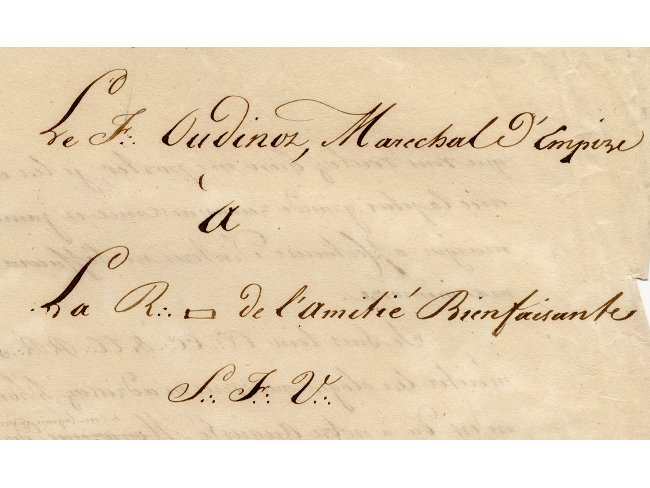 Le F∴ Oudinot, Marechal d'Empire
à
La R∴ ▭ de l'amitié Bienfaisante
S∴ F∴ V∴